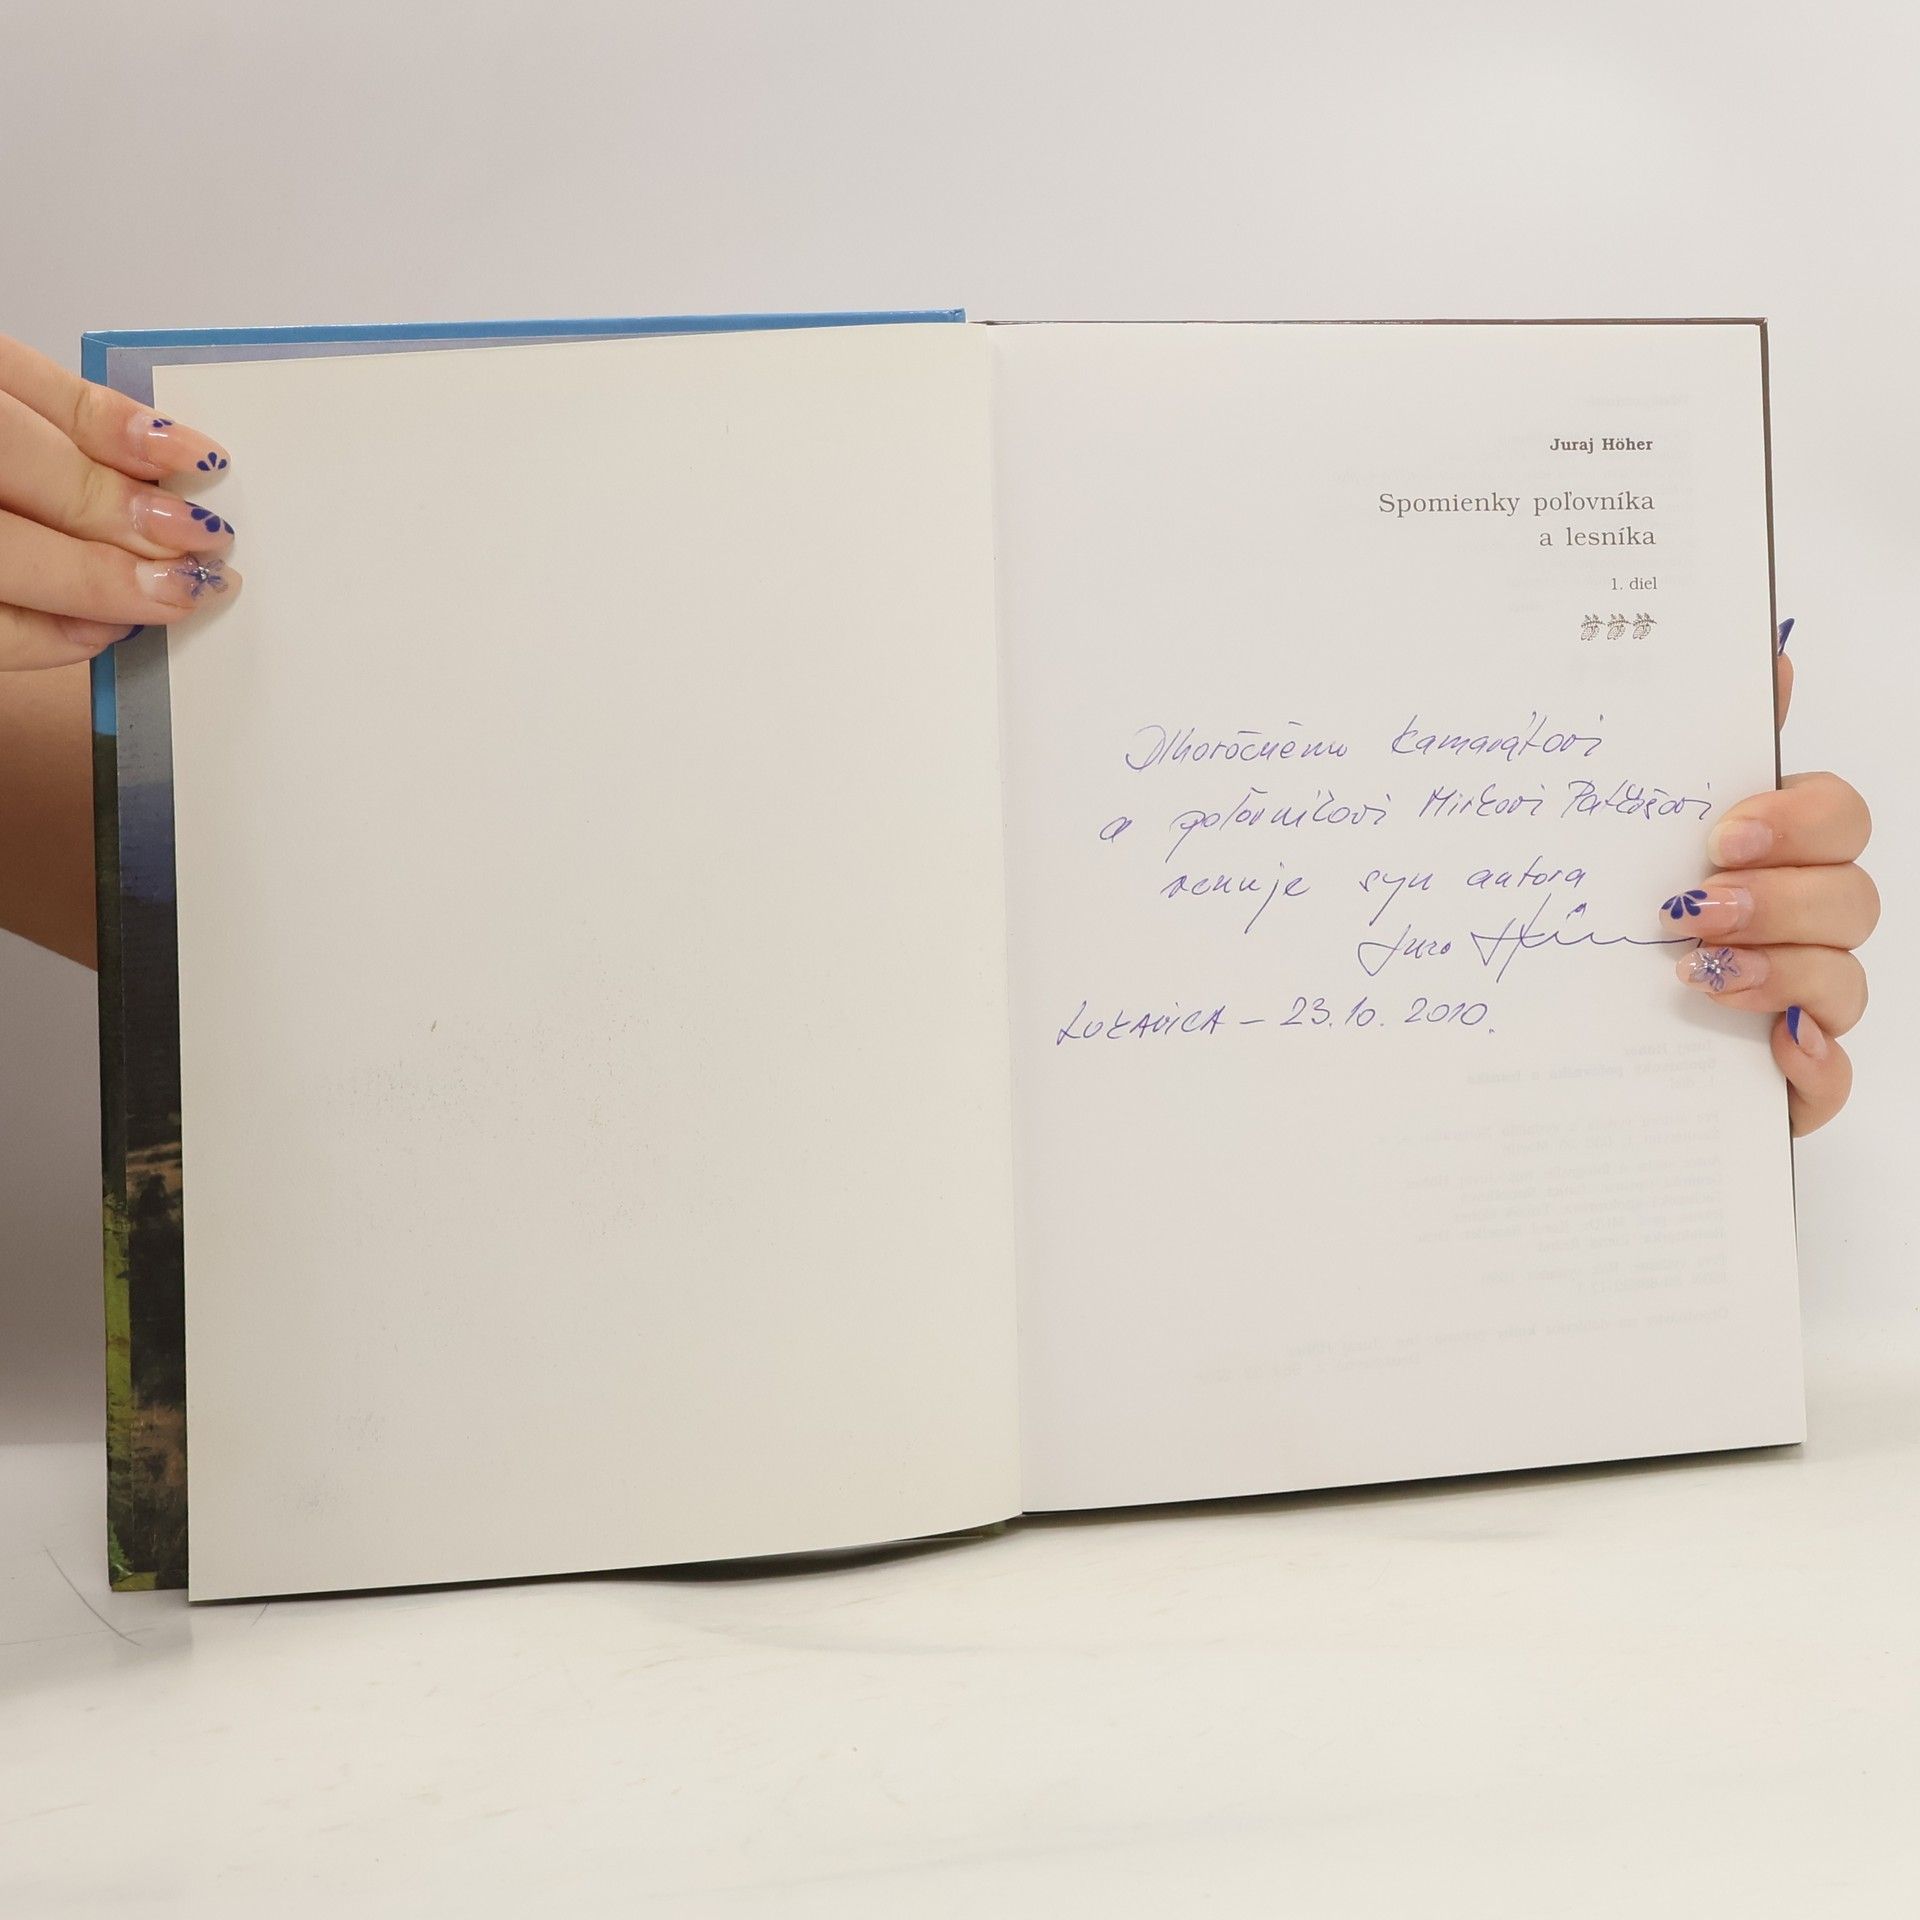 Juraj Höher
Spomienky poľovníka
a lesníka
1. diel
Dlhoročnému kamarátovi
a poľovníkovi Mirkovi
venuje syn autora
Juro
LUKAVICA – 23.10. 2010.